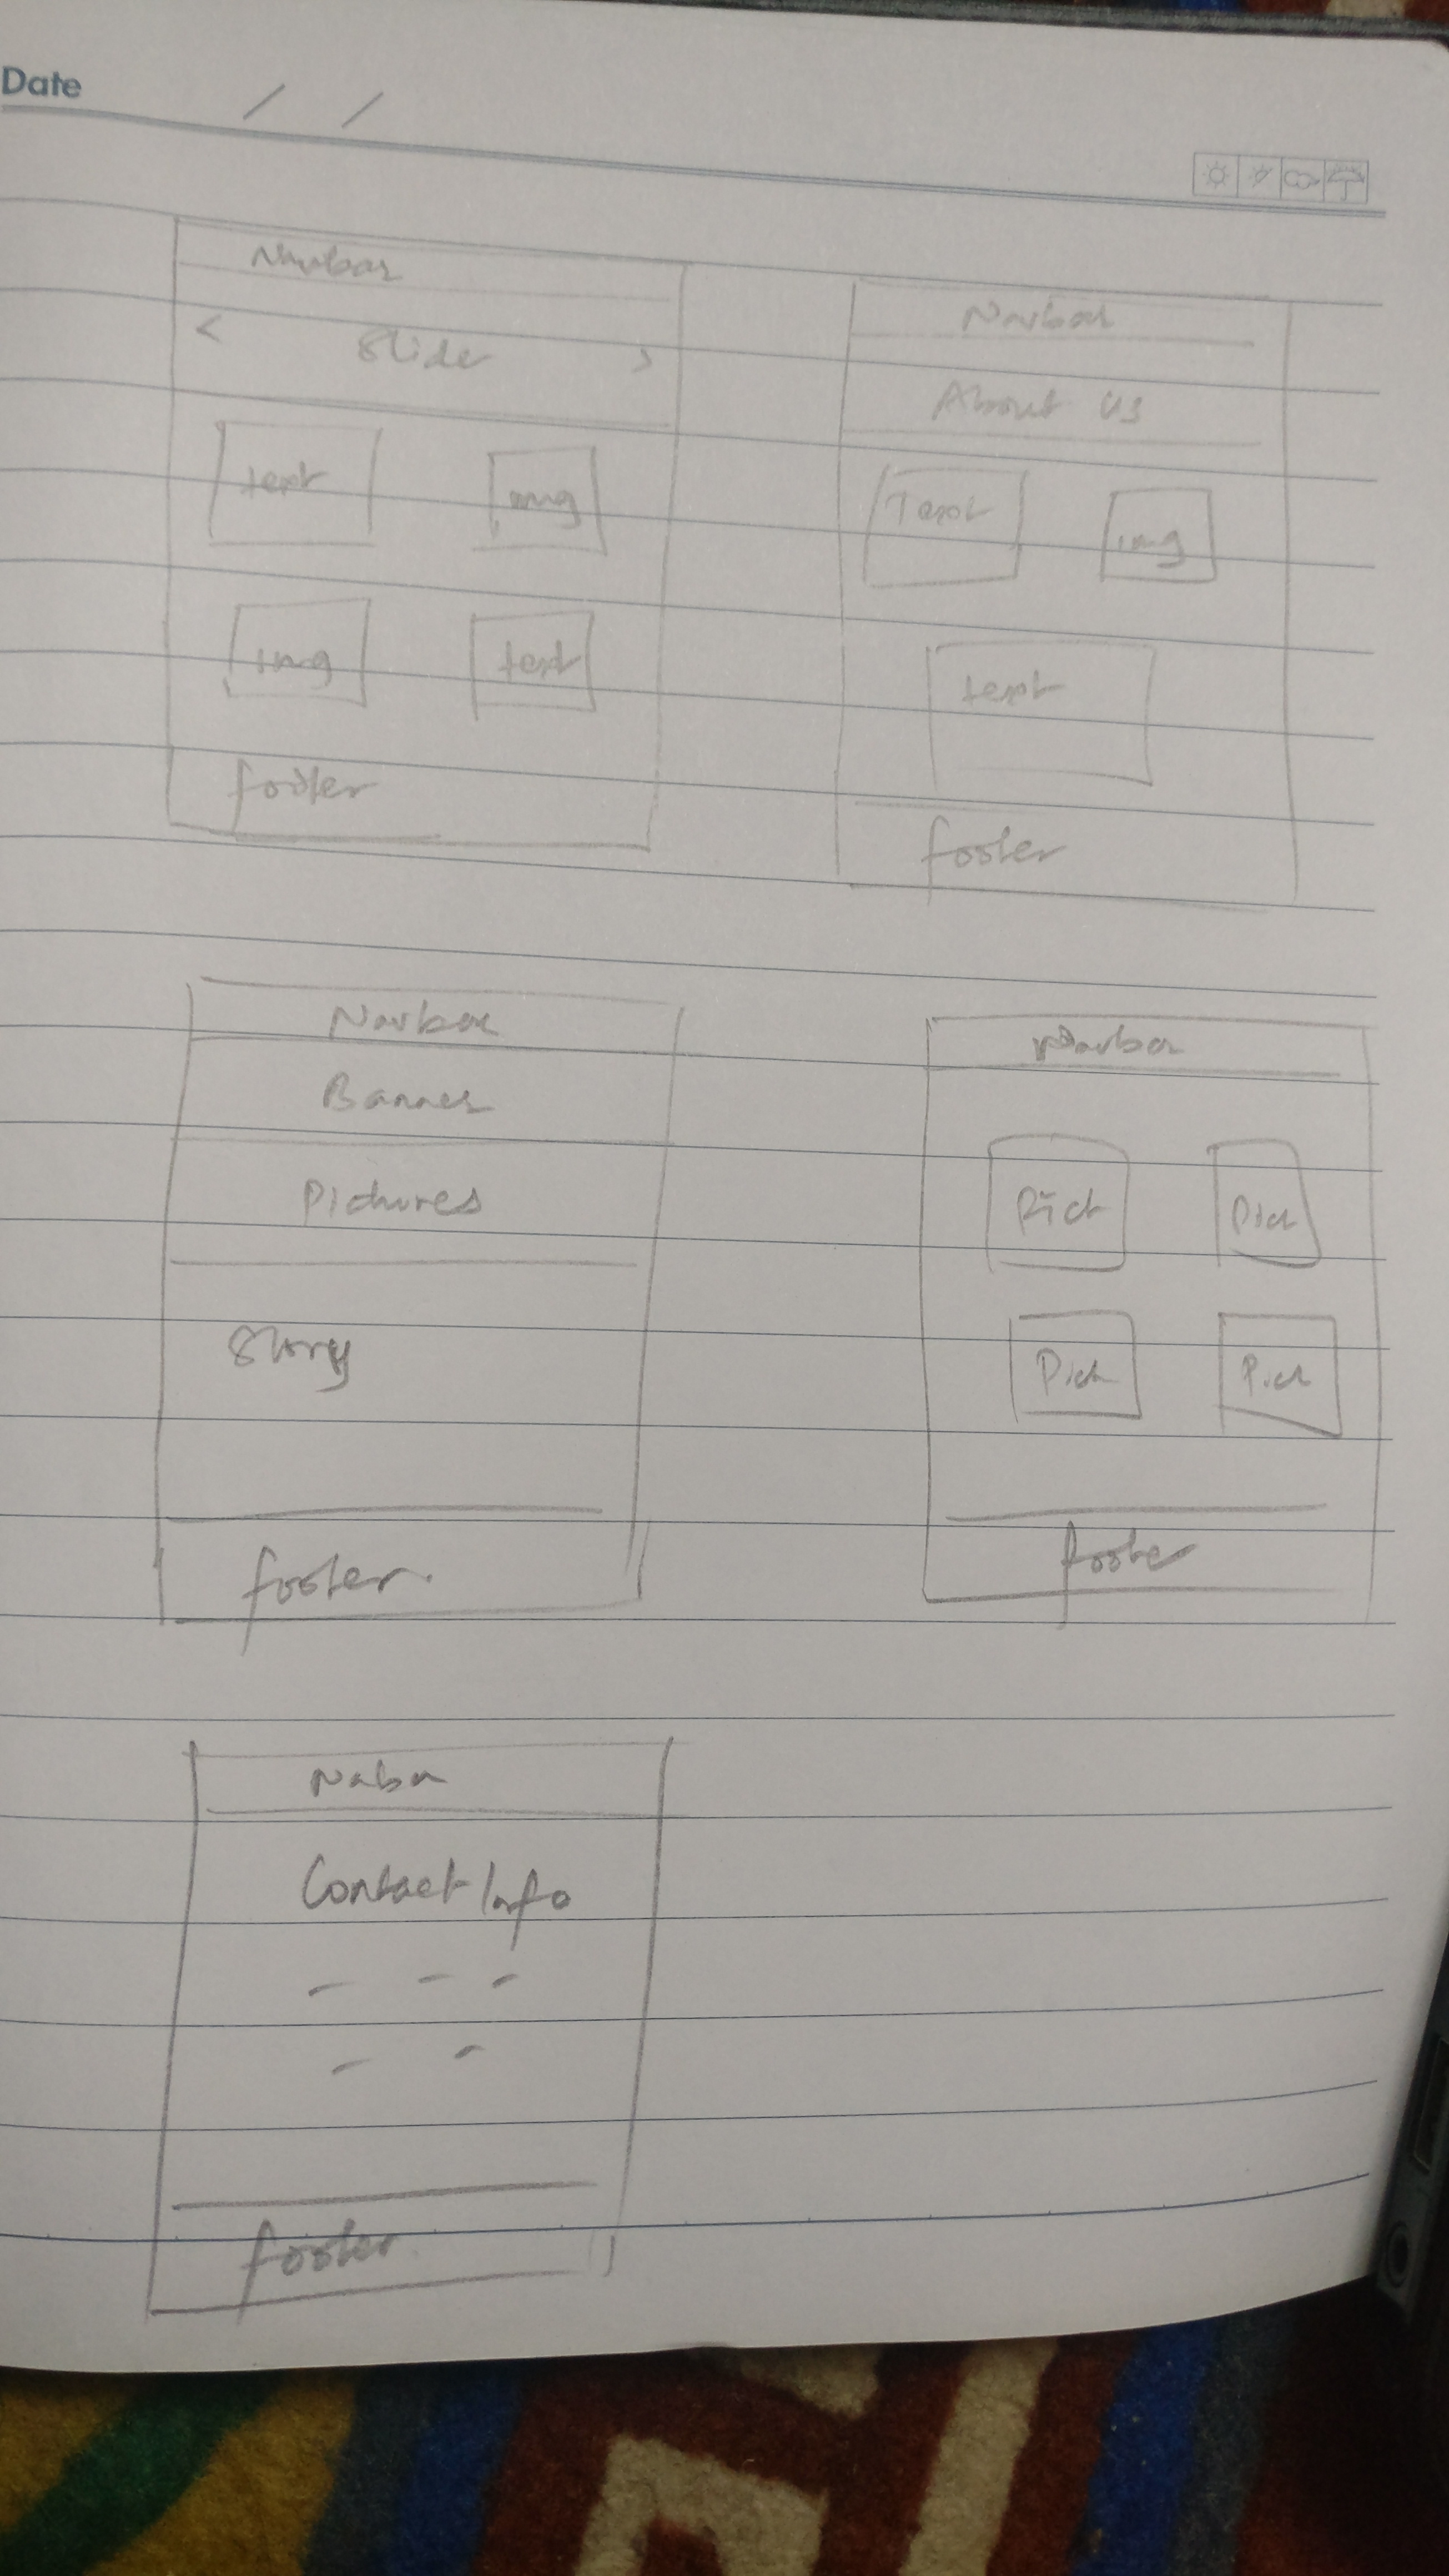 Date / /
Navbar
< Slide >
text img
img text
footer
Navbar
About us
Text img
text
footer
Navbar
Banner
Pictures
Story
footer.
Navbar
Pict Pict
Pict Pict
footer
Nabr
Contact Info
footer